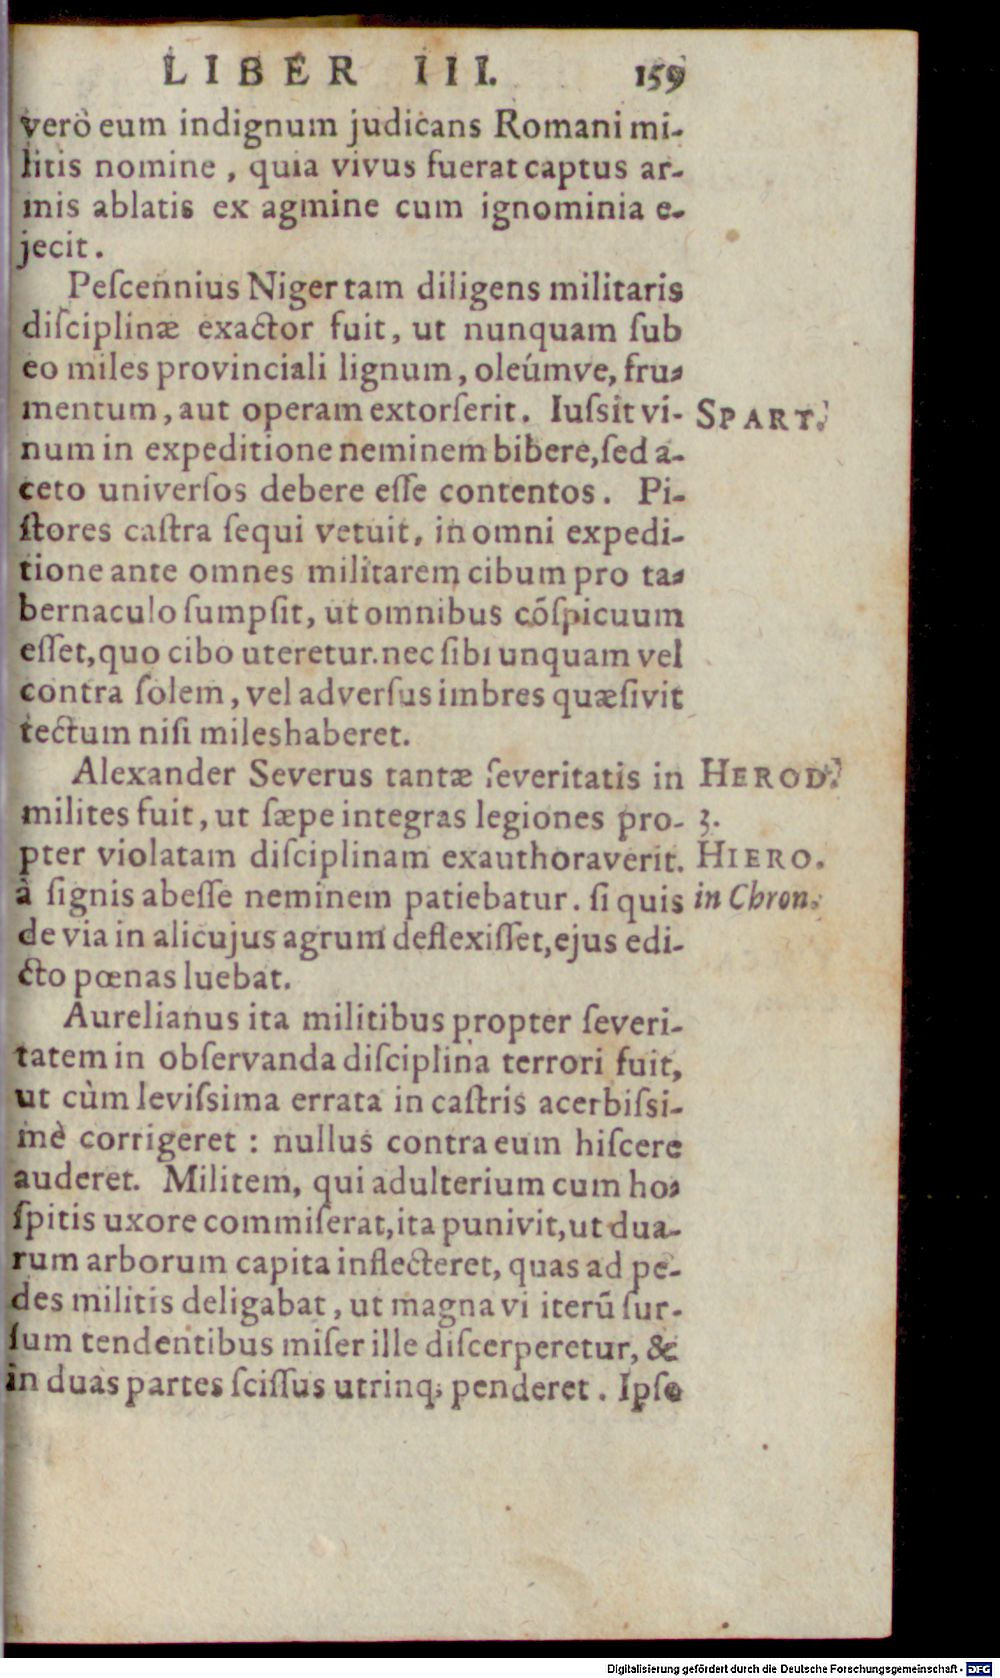 LIBER III. 159
verò eum indignum judicans Romani mi-
litis nomine, quia vivus fuerat captus ar-
mis ablatis ex agmine cum ignominia e-
jecit.
Peſcennius Niger tam diligens militaris
diſciplinæ exactor fuit, ut nunquam ſub
eo miles provinciali lignum, oleúmve, fru-
mentum, aut operam extorſerit. Iuſsit vi- SPART.
num in expeditione neminem bibere, ſed a-
ceto univerſos debere eſſe contentos. Pi-
ſtores caſtra ſequi vetuit, in omni expedi-
tione ante omnes militarem cibum pro ta-
bernaculo ſumpſit, ut omnibus cõſpicuum
eſſet, quo cibo uteretur. nec ſibi unquam vel
contra ſolem, vel adverſus imbres quæſivit
tectum niſi miles haberet.
Alexander Severus tantæ ſeveritatis in HEROD.
milites fuit, ut ſæpe integras legiones pro- 3.
pter violatam diſciplinam exauthoraverit. HIERO.
à ſignis abeſſe neminem patiebatur. ſi quis in Chron.
de via in alicujus agrum deflexiſſet, ejus edi-
cto pœnas luebat.
Aurelianus ita militibus propter ſeveri-
tatem in obſervanda diſciplina terrori fuit,
ut cùm leviſsima errata in caſtris acerbiſsi-
mè corrigeret : nullus contra eum hiſcere
auderet. Militem, qui adulterium cum ho-
ſpitis uxore commiſerat, ita punivit, ut dua-
rum arborum capita inflecteret, quas ad pe-
des militis deligabat, ut magna vi iterũ ſur-
ſum tendentibus miſer ille diſcerperetur, &
in duas partes ſciſſus utrinq; penderet. Ipſe
Digitalisierung gefördert durch die Deutsche Forschungsgemeinschaft - DFG